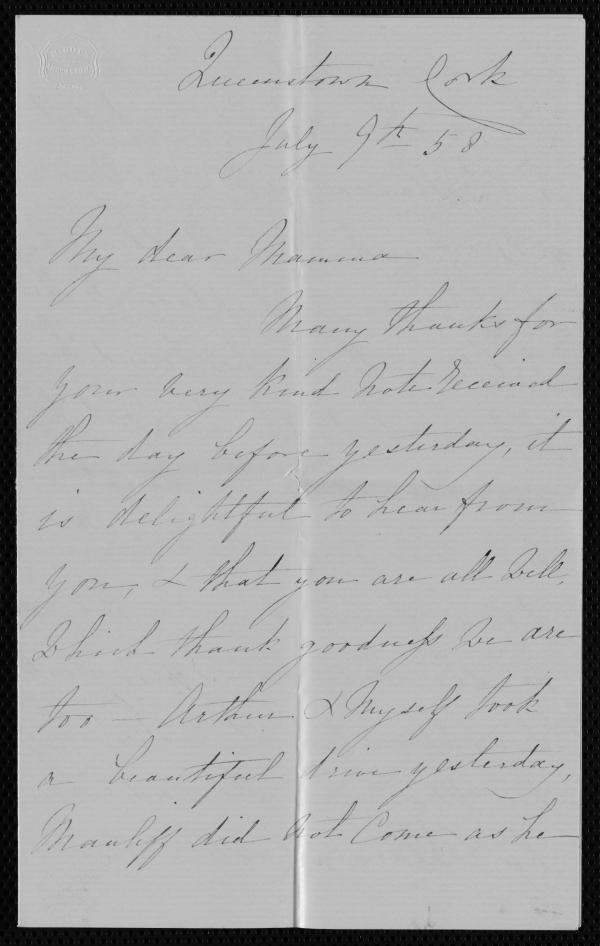 Queenstown Cork
July 9th 58
My dear Mamma
Many thanks for
your very kind note received
the day before yesterday, it
is delightful to hear from
you, & that you are all well,
which thank goodness we are
too — Arthur & Myself took
a beautiful drive yesterday,
Mauliff did not Come as he